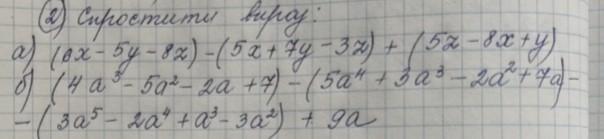 ② Спростити вираз:
а) (6x - 5y - 8z) - (5x + 7y - 3z) + (5z - 8x + y)
б) (4a³ - 5a² - 2a + 7) - (5a⁴ + 3a³ - 2a² + 7a) -
- (3a⁵ - 2a⁴ + a³ - 3a²) + 9a